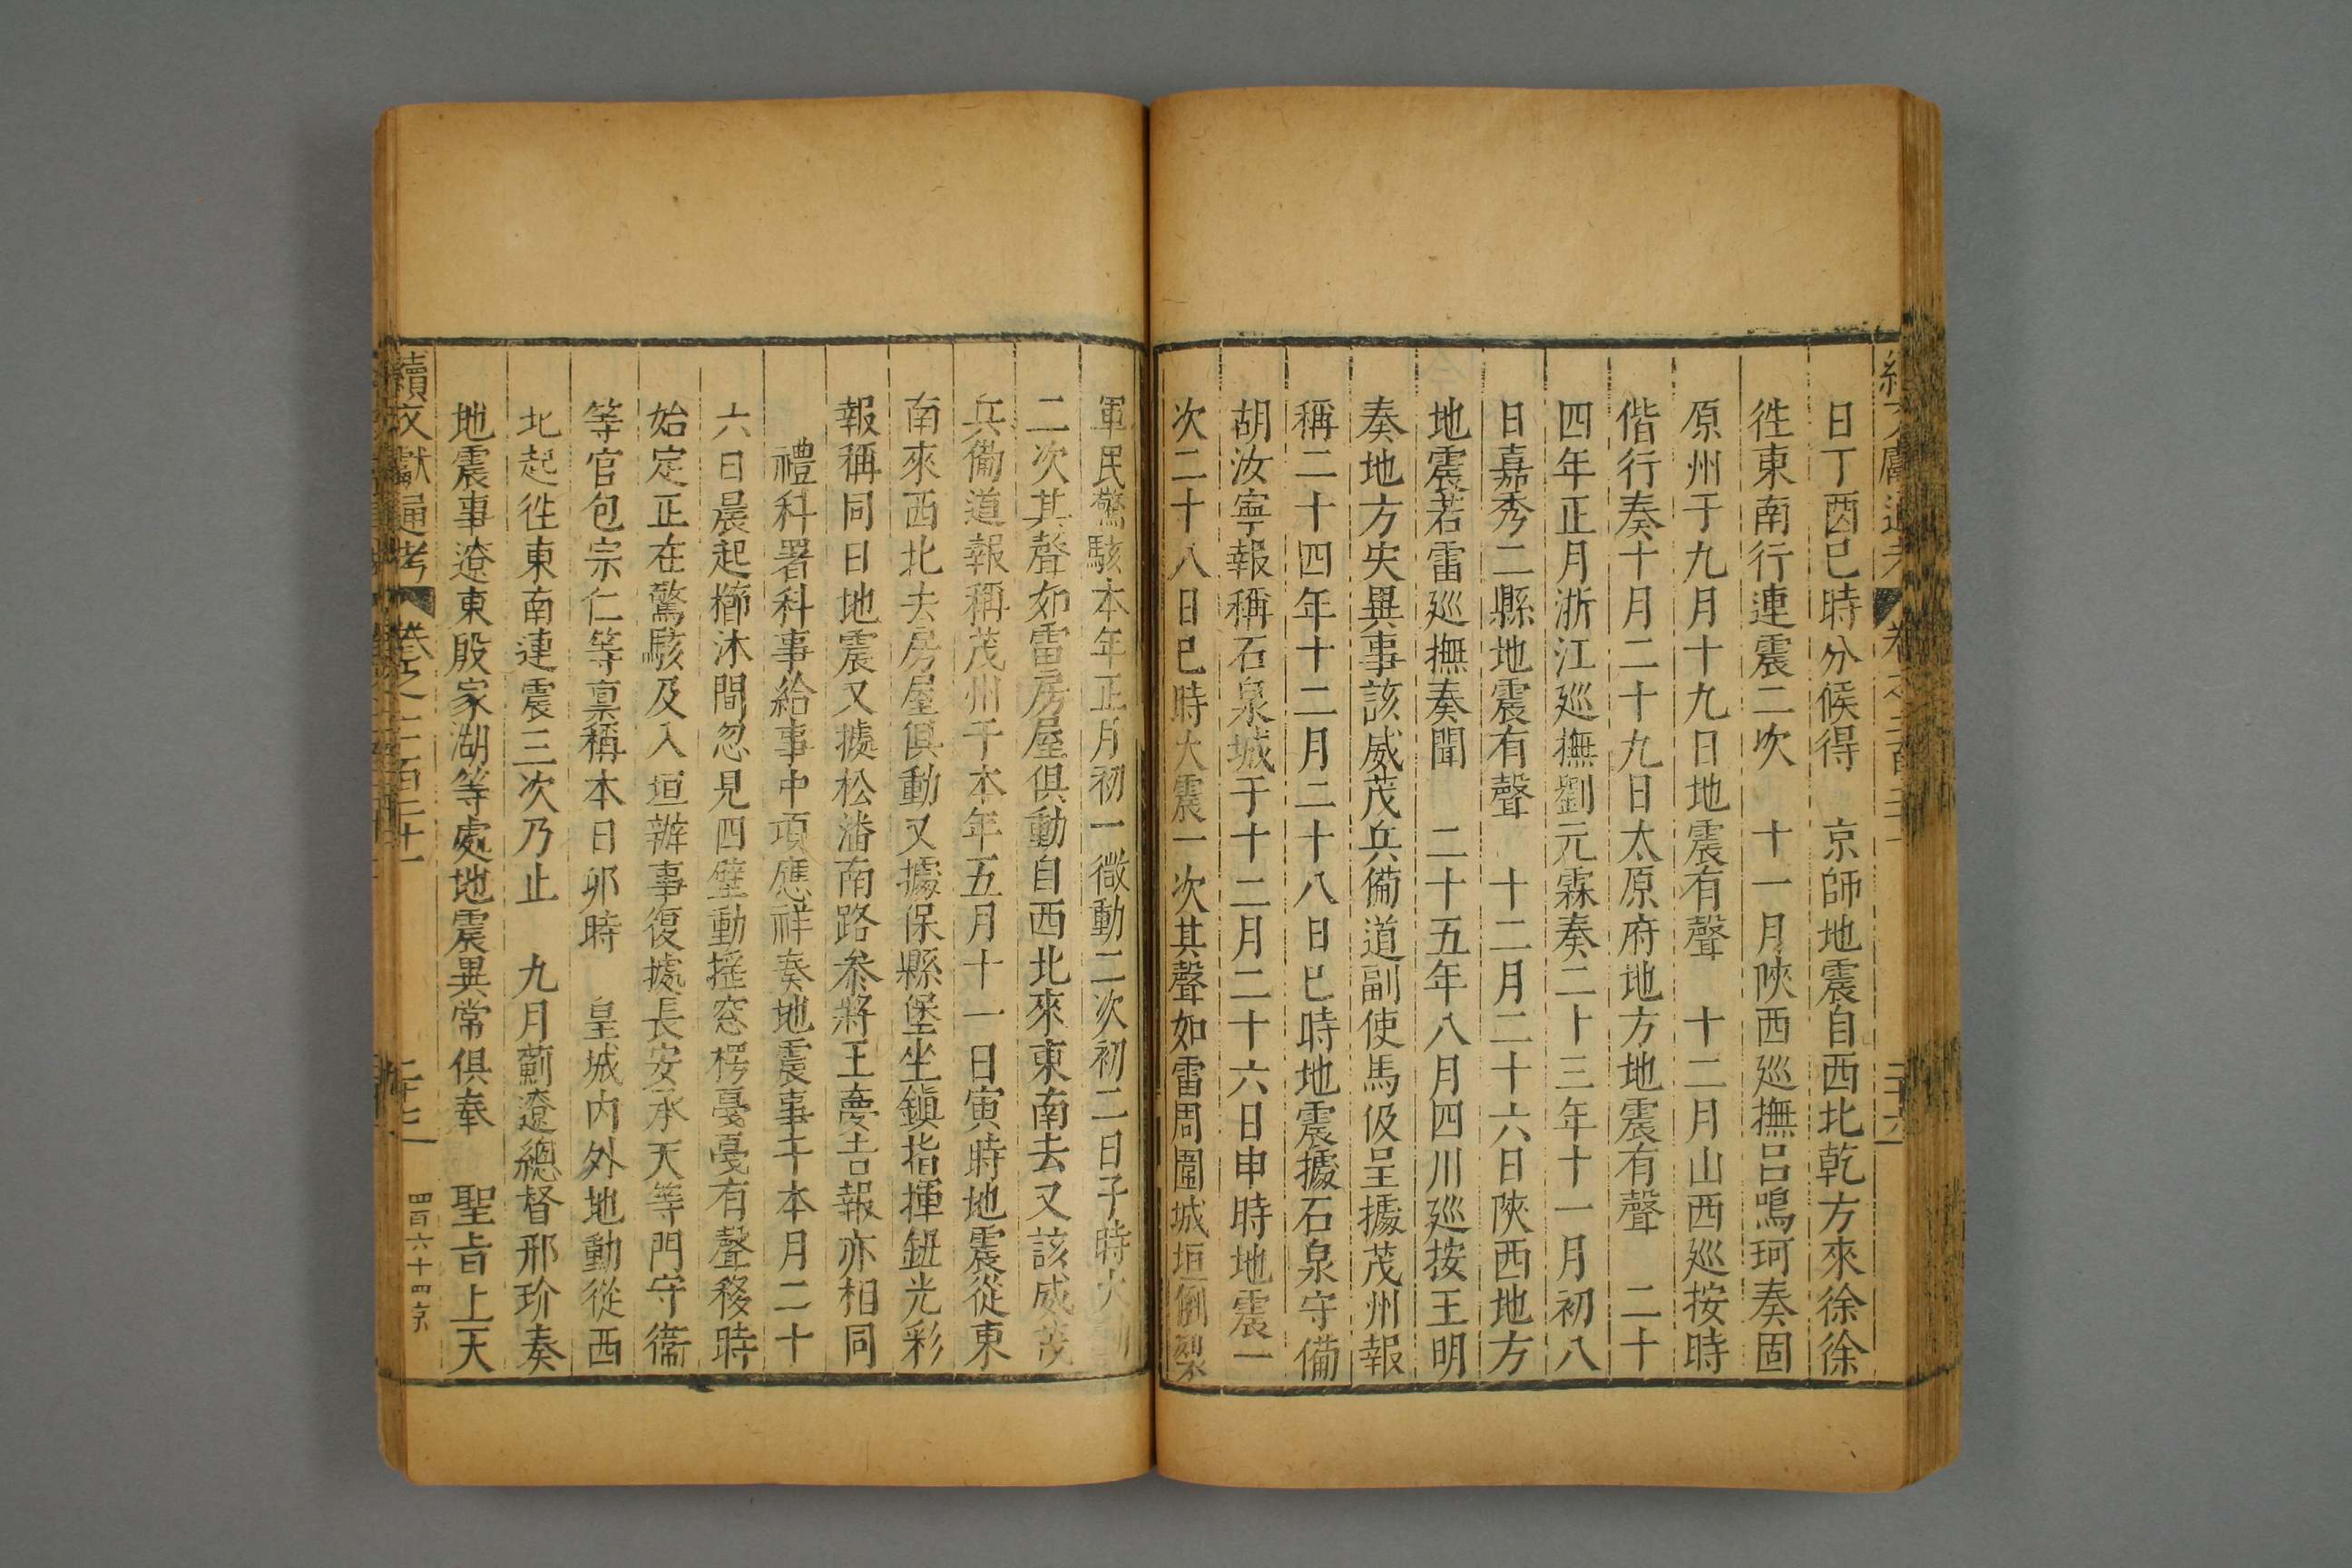 日丁酉巳時分候得　京師地震自西北乾方來徐徐
徃東南行連震二次　十一月陝西廵撫呂鳴珂奏固
原州于九月十九日地震有聲　十二月山西廵按時
偕行奏十月二十九日太原府地方地震有聲　二十
四年正月浙江廵撫劉元霖奏二十三年十一月初八
日嘉秀二縣地震有聲　十二月二十六日陝西地方
地震若雷廵撫奏聞　二十五年八月四川廵按王明
奏地方灾異事該威茂兵備道副使馬伋呈據茂州報
稱二十四年十二月二十八日巳時地震據石泉守備
胡汝寧報稱石泉城于十二月二十六日申時地震一
次二十八日巳時大震一次其聲如雷周圍城垣倒裂
軍民驚駭本年正月初一微動二次初二日子時大動
二次其聲如雷房屋俱動自西北來東南去又該威茂
兵備道報稱茂州于本年五月十一日寅時地震從東
南來西北去房屋俱動又據保縣堡坐鎮指揮鈕光彩
報稱同日地震又據松潘南路叅將王夢吉報亦相同
禮科署科事給事中項應祥奏地震事于本月二十
六日晨起櫛沐間忽見四壁動搖窓楞戞戞有聲移時
始定正在驚駭及入垣辦事復據長安承天等門守衞
等官包宗仁等禀稱本日卯時　皇城内外地動從西
北起徃東南連震三次乃止　九月薊遼總督邢玠奏
地震事遼東殷家湖等處地震異常俱奉　聖旨上天
續文獻通考　卷之二百二十一　二十七　四百六十四字